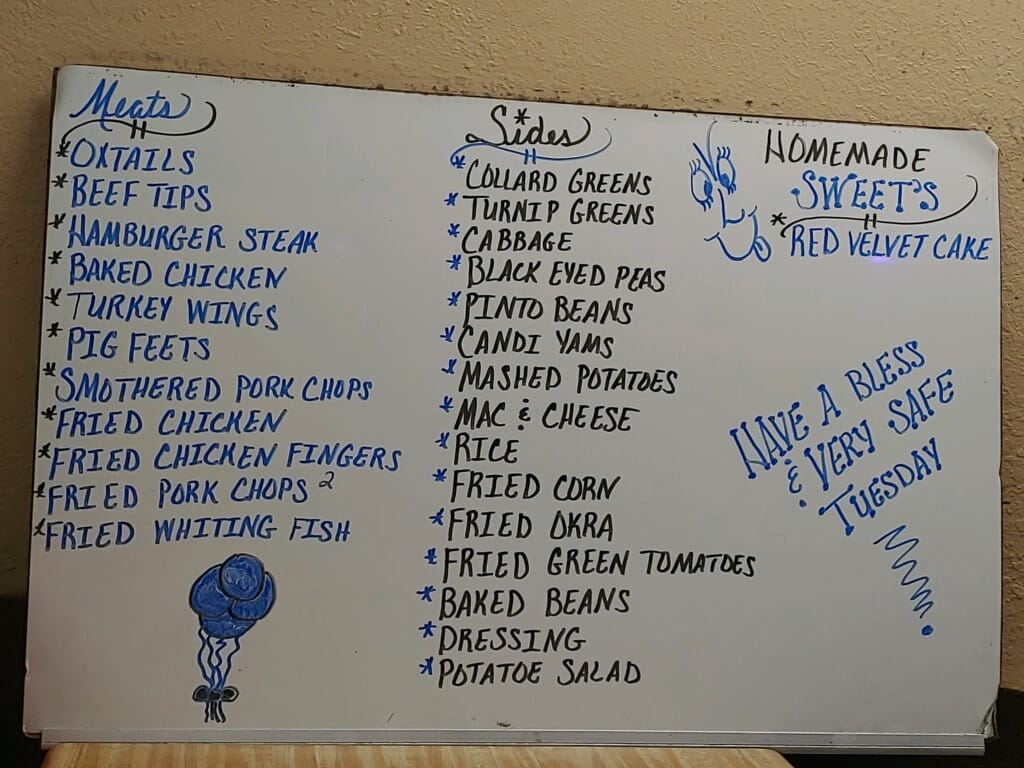 Meats
*OXTAILS
*BEEF TIPS
*HAMBURGER STEAK
*BAKED CHICKEN
*TURKEY WINGS
*PIG FEETS
*SMOTHERED PORK CHOPS
*FRIED CHICKEN
*FRIED CHICKEN FINGERS
*FRIED PORK CHOPS 2
*FRIED WHITING FISH
Sides
*COLLARD GREENS
*TURNIP GREENS
*CABBAGE
*BLACK EYED PEAS
*PINTO BEANS
*CANDI YAMS
*MASHED POTATOES
*MAC & CHEESE
*RICE
*FRIED CORN
*FRIED OKRA
*FRIED GREEN TOMATOES
*BAKED BEANS
*DRESSING
*POTATOE SALAD
HOMEMADE
SWEET'S
*RED VELVET CAKE
HAVE A BLESS
& VERY SAFE
TUESDAY